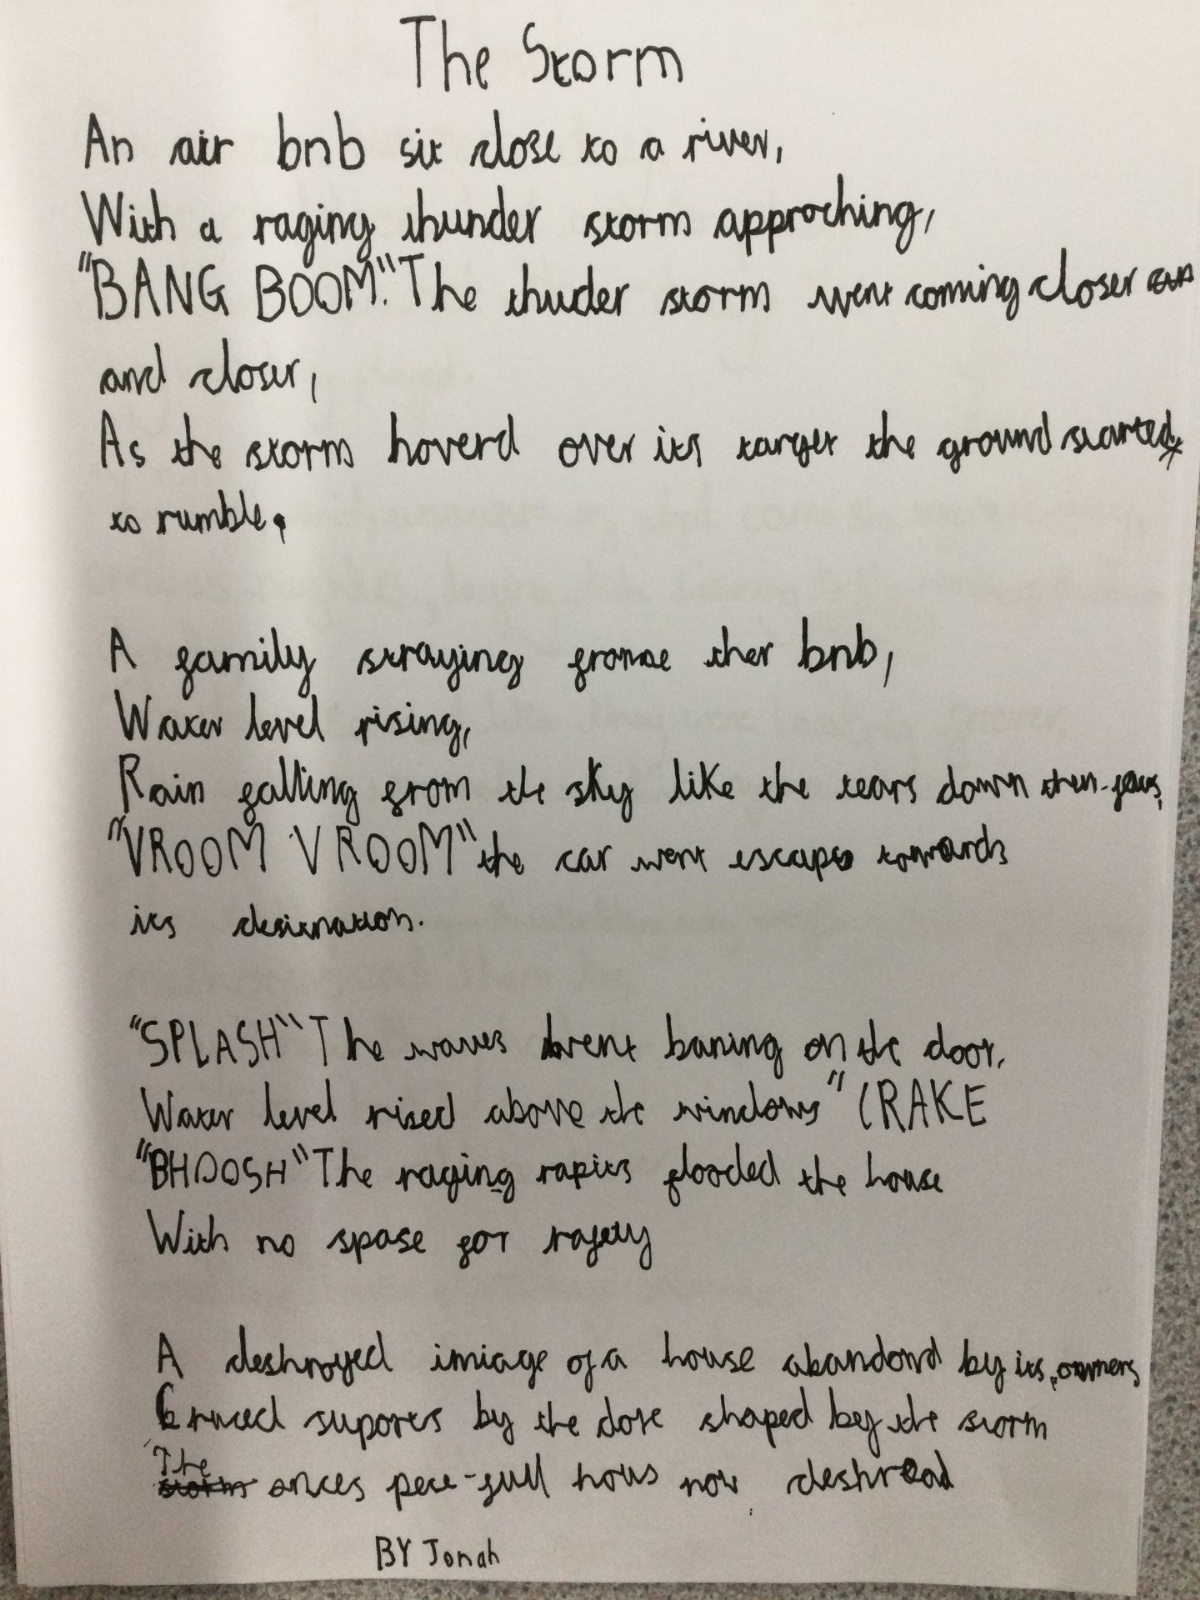 The Storm
An air bnb sit close to a river,
With a raging thunder storm approching,
"BANG BOOM." The thuder storm went coming closer
and closer,
As the storm hoverd over its target the ground started
to rumble.
A family straying from ther bnb,
Water level rising,
Rain falling from the sky like the tears down
"VROOM VROOM" the car went escape towards
its destnation.
"SPLASH" The waves went baning on the door,
Water level rised above the windows "CRAKE
"BHOOSH" The raging rapits flooded the house
With no spase for safety
A deshroyed imiage of a house abandond by its owners
suports by the shaped bey the storm
The onces pece-full hous now
BY Jonah